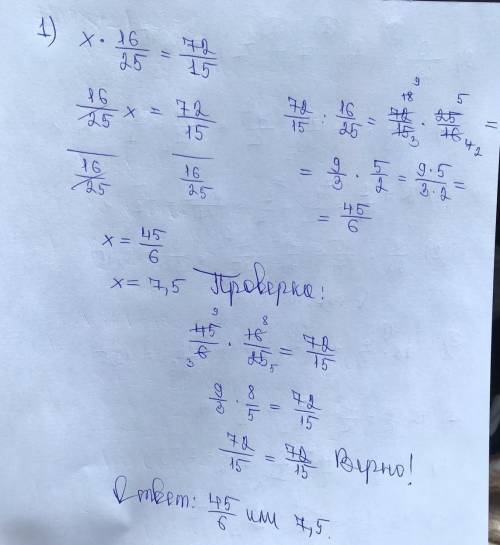 1) x · 16/25 = 72/15
16/25 x = 72/15
16/25 16/25
72/15 : 16/25 = 72/15 · 25/16 =
= 9/3 · 5/2 = 9·5/3·2 =
= 45/6
x = 45/6
x = 7,5 Проверка:
45/6 · 16/25 = 72/15
9/3 · 8/5 = 72/15
72/15 = 72/15 Верно!
Ответ: 45/6 или 7,5.